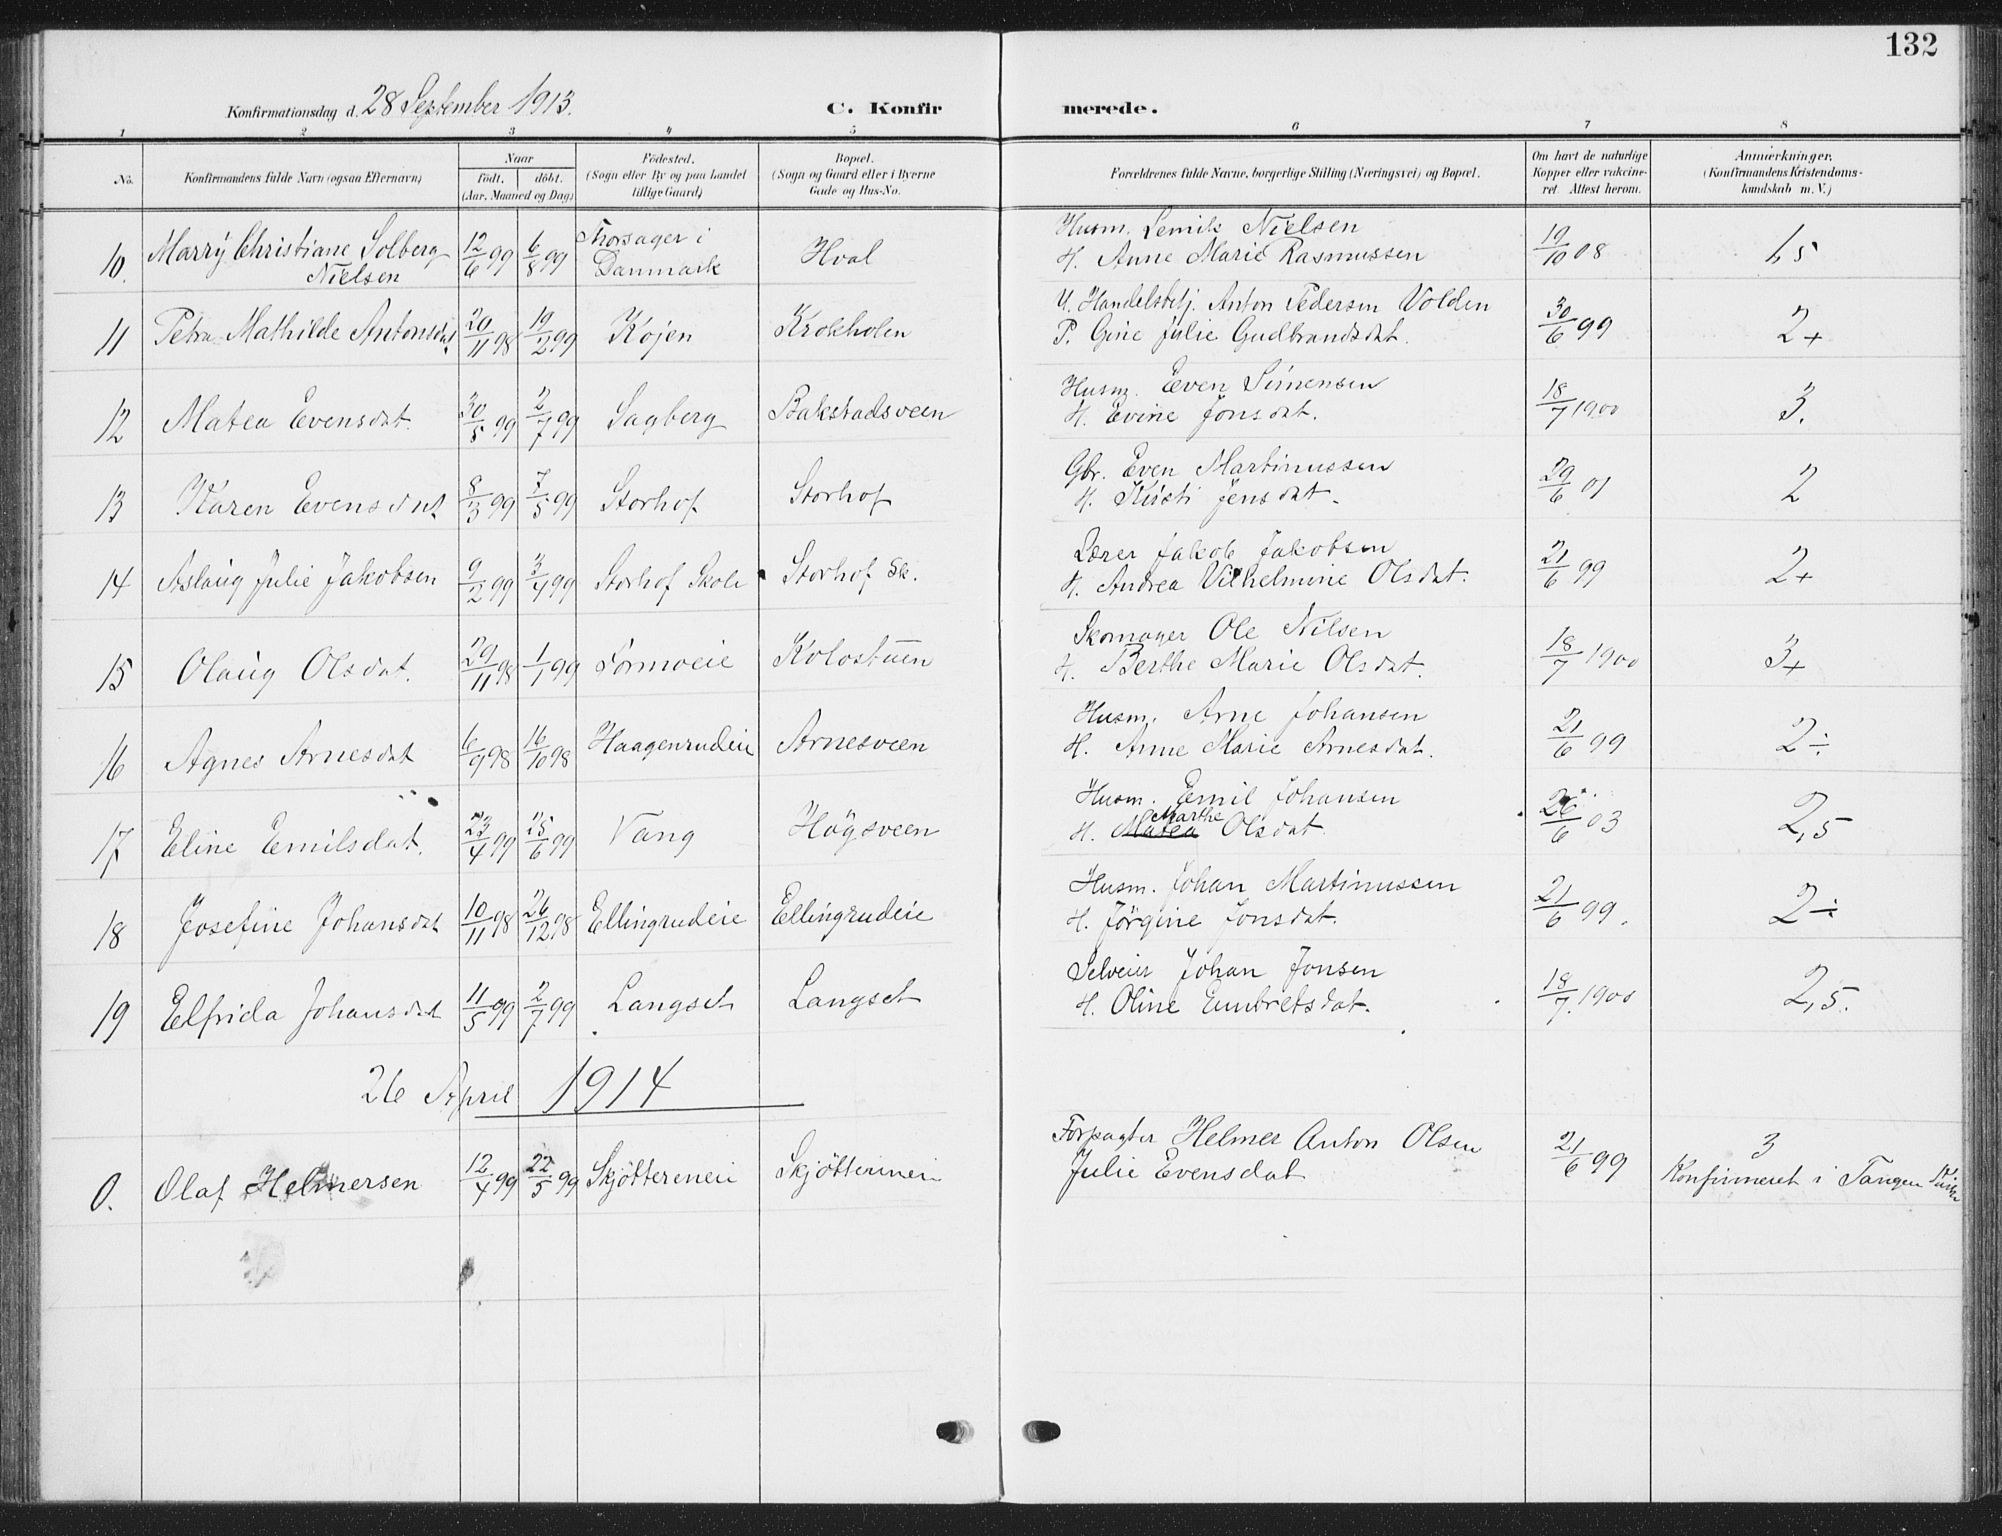 132
Konfirmationsdag d. 28 September 1913. C. Konfirmerede.
1 2 3 4 5 6 7 8
No. Konfirmandens fulde Navn (ogsaa Efternavn) Naar födt. döbt. (Aar, Maaned og Dag) Födested. (Sogn eller By og paa Landet tillige Gaard) Bopæl. (Sogn og Gaard eller i Byerne Gade og Hus-No. Forældrenes fulde Navne, borgerlige Stilling (Næringsvei) og Bopæl. Om havt de naturlige Kopper eller vakcineret Attest herom. Anmærkninger. (Konfirmandens Kristendomskundskab m. V.)
10. Marry Christiane Solberg Nielsen 12/6 99 6/8 99 Thorsager i Danmark Hval Husm. Lemik Nielsen H. Anne Marie Rasmussen 19/10 08 1,5
11 Petra Mathilde Antonsdat 20/11 98 19/2 99 Kojen Krokholen U. Handelsbetj. Anton Pedersen Volden P. Gine Julie Gudbrandsdat. 30/6 99 2+
12 Matea Evensdat. 30/5 99 2/7 99 Sagberg Bakstadsveen Husm. Even Simensen H. Evine Jonsdat. 18/7 1900 3.
13 Karen Evensdat 8/3 99 7/5 99 Storhof Storhof Gbr. Even Martinussen H. Kristi Jensdat. 29/6 01 2
14 Aslaug Julie Jakobsen 9/2 99 3/4 99 Storhof Skole Storhof Sk. Lærer Jakob Jakobsen H. Andrea Vilhelmine Olsdat. 21/6 99 2+
15 Olaug Olsdat. 29/11 98 1/1 99 Tomoeie Kolostuen Skomager Ole Nilsen H. Berthe Marie Olsdat. 18/7 1900 3+
16 Agnes Arnesdat 6/9 98 16/10 98 Haagenrudeie Arnesveen Husm. Arne Johansen H. Anne Marie Arnesdat. 21/6 99 2÷
17 Eline Emilsdat. 23/4 99 25/6 99 Vang Høgsveen Husm. Emil Johansen H. Matea Marthe Olsdat. 26/6 03 2,5
18 Josefine Johansdat 10/11 98 26/12 98 Ellingrudeie Ellingrudeie Husm. Johan Martinussen H. Jörgine Jonsdat. 21/6 99. 2÷
19 Elfrida Johansdat 11/5 99 2/7 99 Langset Langset Selveier Johan Jonsen H. Oline Embretsdat. 18/7. 1900 2,5.
26 April 1914
0. Olaf Helmersen 12/4 99 22/5 99 Skjöttereneie Forpagter Helmer Anton Olsen Julie Evensdat 21/6 99 3 Konfirmeret i Tangen Kirke